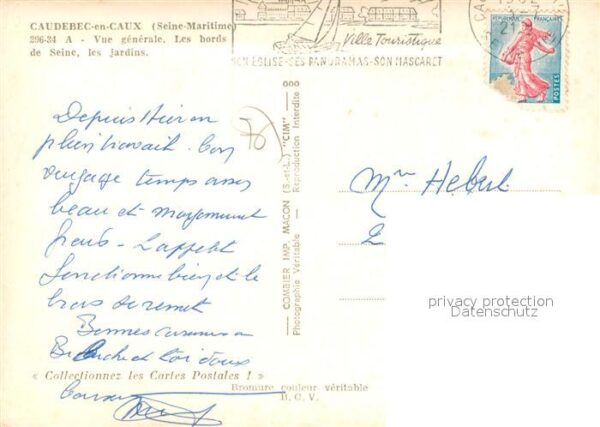 CAUDEBEC-en-CAUX (Seine-Maritime)
296-34 A - Vue générale. Les bords
de Seine, les jardins.
Ville Touristique
SON EGLISE-SES PANORAMAS-SON MASCARET
REPUBLIQUE FRANÇAISE
POSTES
Depuis Hier en
plein travail. Bon
voyage temps assez
beau et moyennement
frais - L'appétit
fonctionne bien et le
bras se remet
Bonnes
et toi
« Collectionnez les Cartes Postales ! »
76
ooo
COMBIER IMP. MACON (S.-et-L.) "CIM"
Photographie Véritable - Reproduction Interdite
Bromure couleur véritable
B. C. V.
Mr Hebert
2
privacy protection
Datenschutz